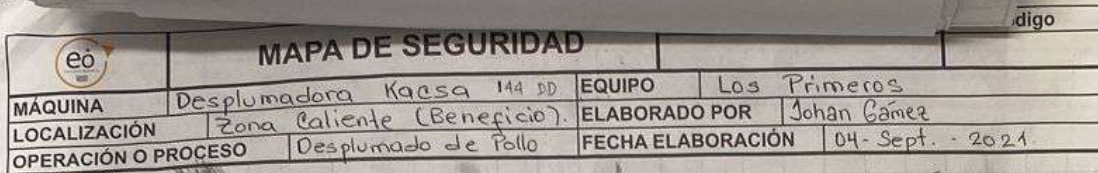 digo
eó
MAPA DE SEGURIDAD
MÁQUINA Desplumadora Kacsa 144 DD EQUIPO Los Primeros
LOCALIZACIÓN Zona Caliente (Beneficio). ELABORADO POR Johan Gámez
OPERACIÓN O PROCESO Desplumado de Pollo FECHA ELABORACIÓN 04-Sept. - 2021.